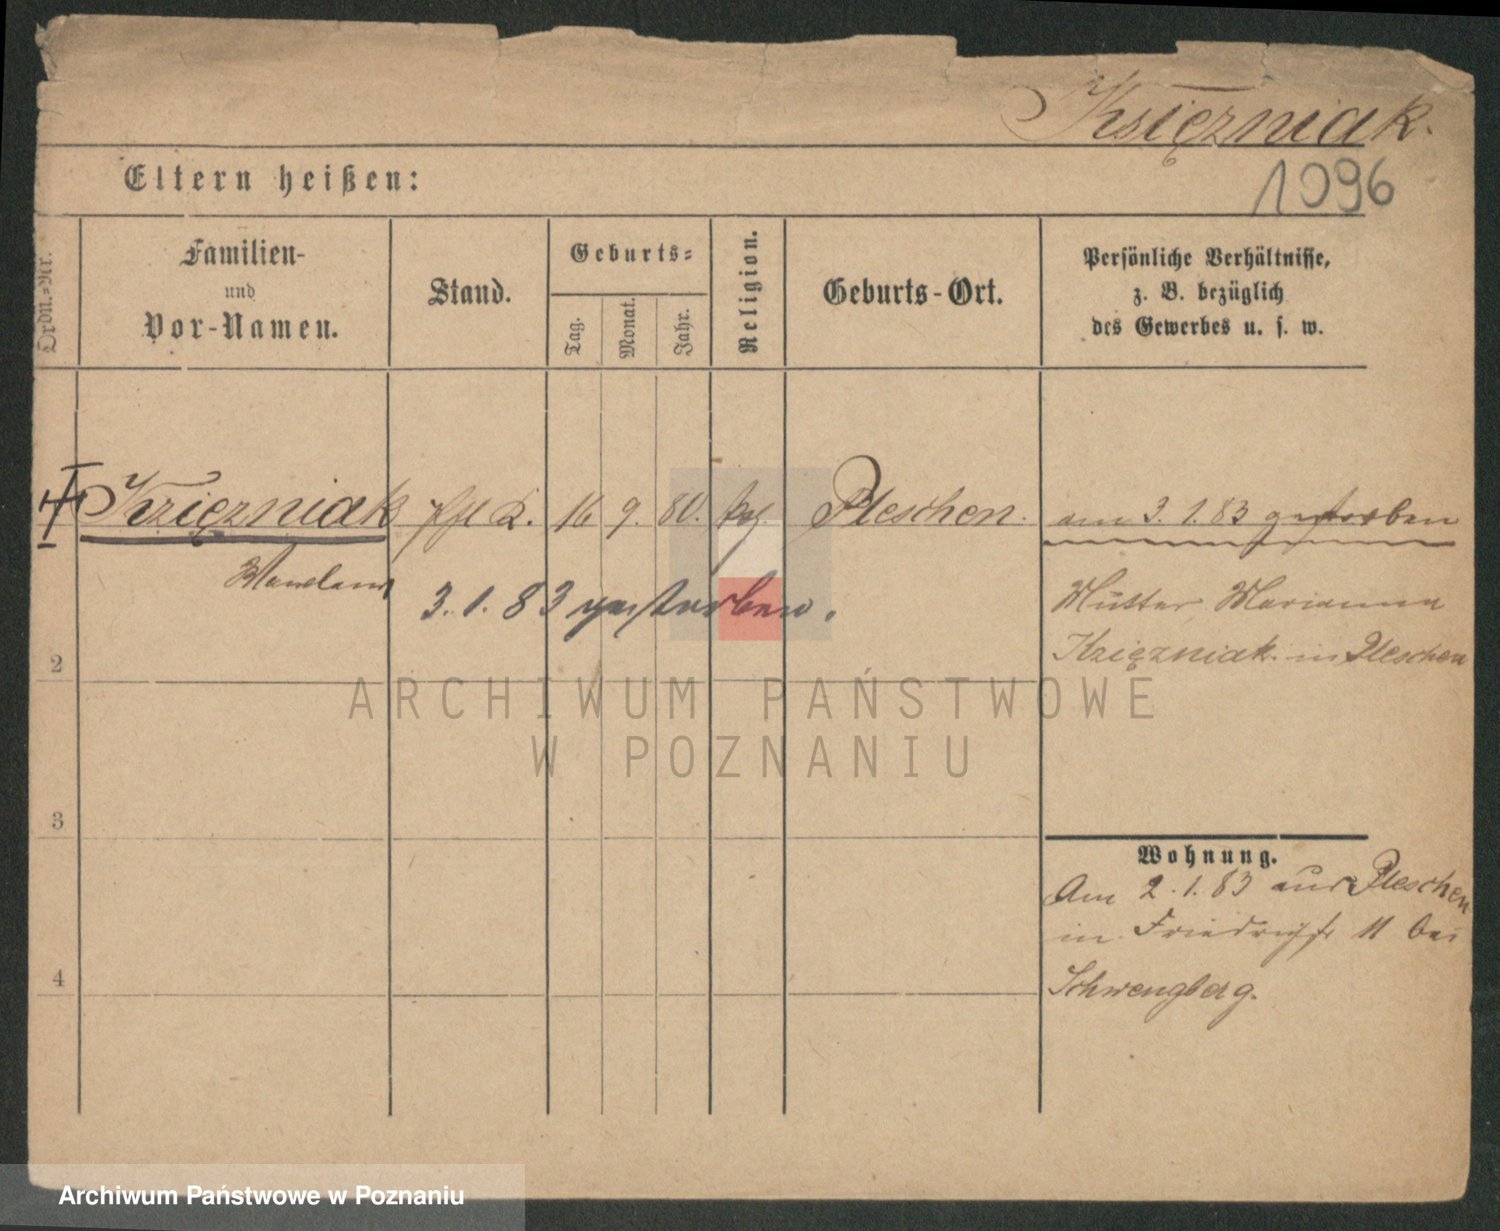 Księzniak.
1096
Eltern heißen:
Ordn.-Nr.
Familien-
und
Vor-Namen.
Stand.
Geburts-
Tag.
Monat.
Jahr.
Religion.
Geburts-Ort.
Persönliche Verhältnisse,
z. B. bezüglich
des Gewerbes u. s. w.
Krzięzniak
16 9. 80. Pleschen.
am 3. 1. 83 gestorben
3. 1. 83 gestorben.
Mutter Marianna
Krzięzniak in Pleschen
2
3
4
Wohnung.
Am 2. 1. 83 aus Pleschen
in Friedrichstr 11 bei
Schwengberg.
ARCHIWUM PAŃSTWOWE
W POZNANIU
Archiwum Państwowe w Poznaniu